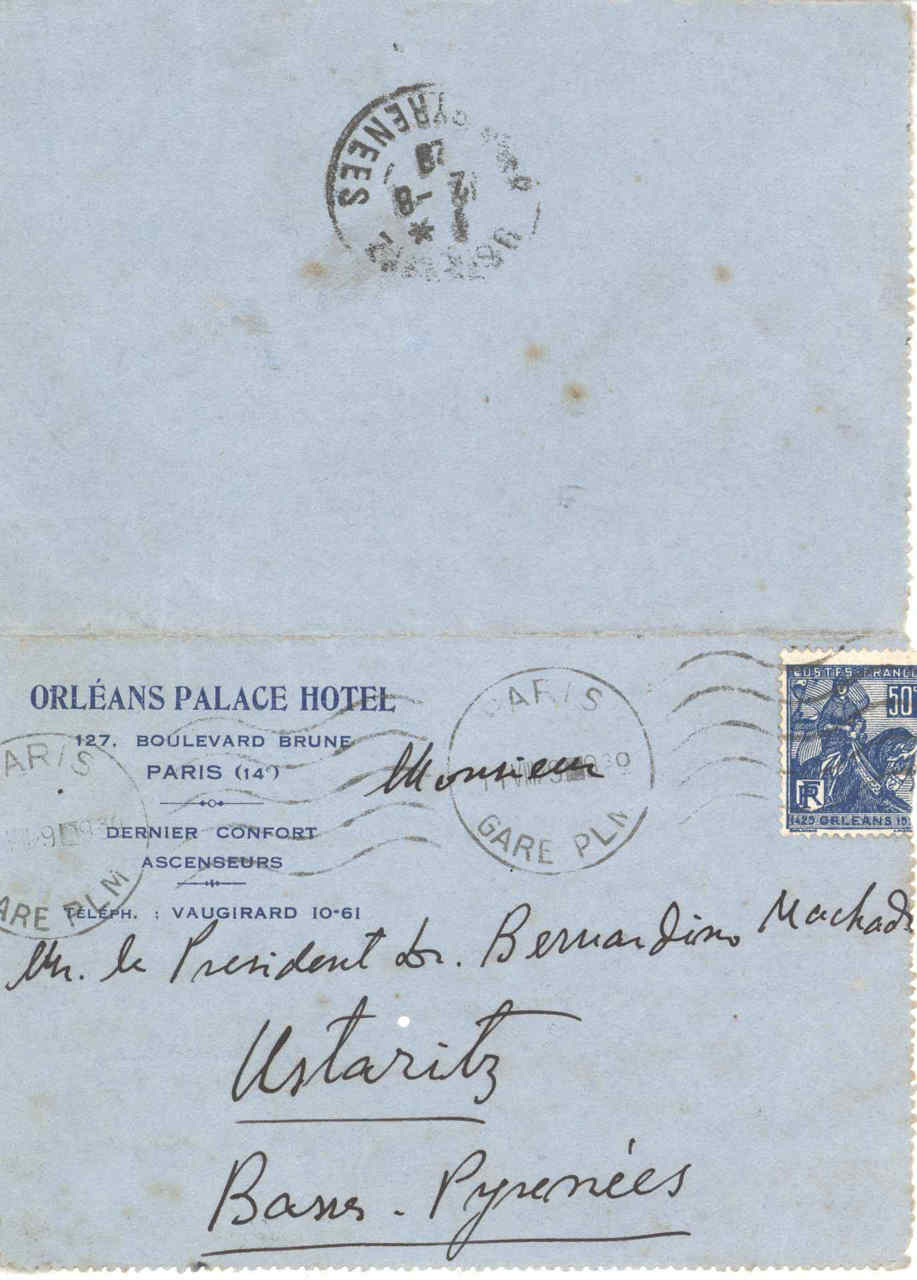 PYRENEES
12 -8
29
ORLÉANS PALACE HOTEL
127, BOULEVARD BRUNE
PARIS (14e)
DERNIER CONFORT
ASCENSEURS
TÉLÉPH. : VAUGIRARD 10-61
PARIS
GARE PLM
PARIS
GARE PLM
POSTES FRANCE
50c
RF
1429 ORLEANS
Monsieur
Mr. le President Dr. Bernardino Machado
Ustaritz
Basses-Pyrenées